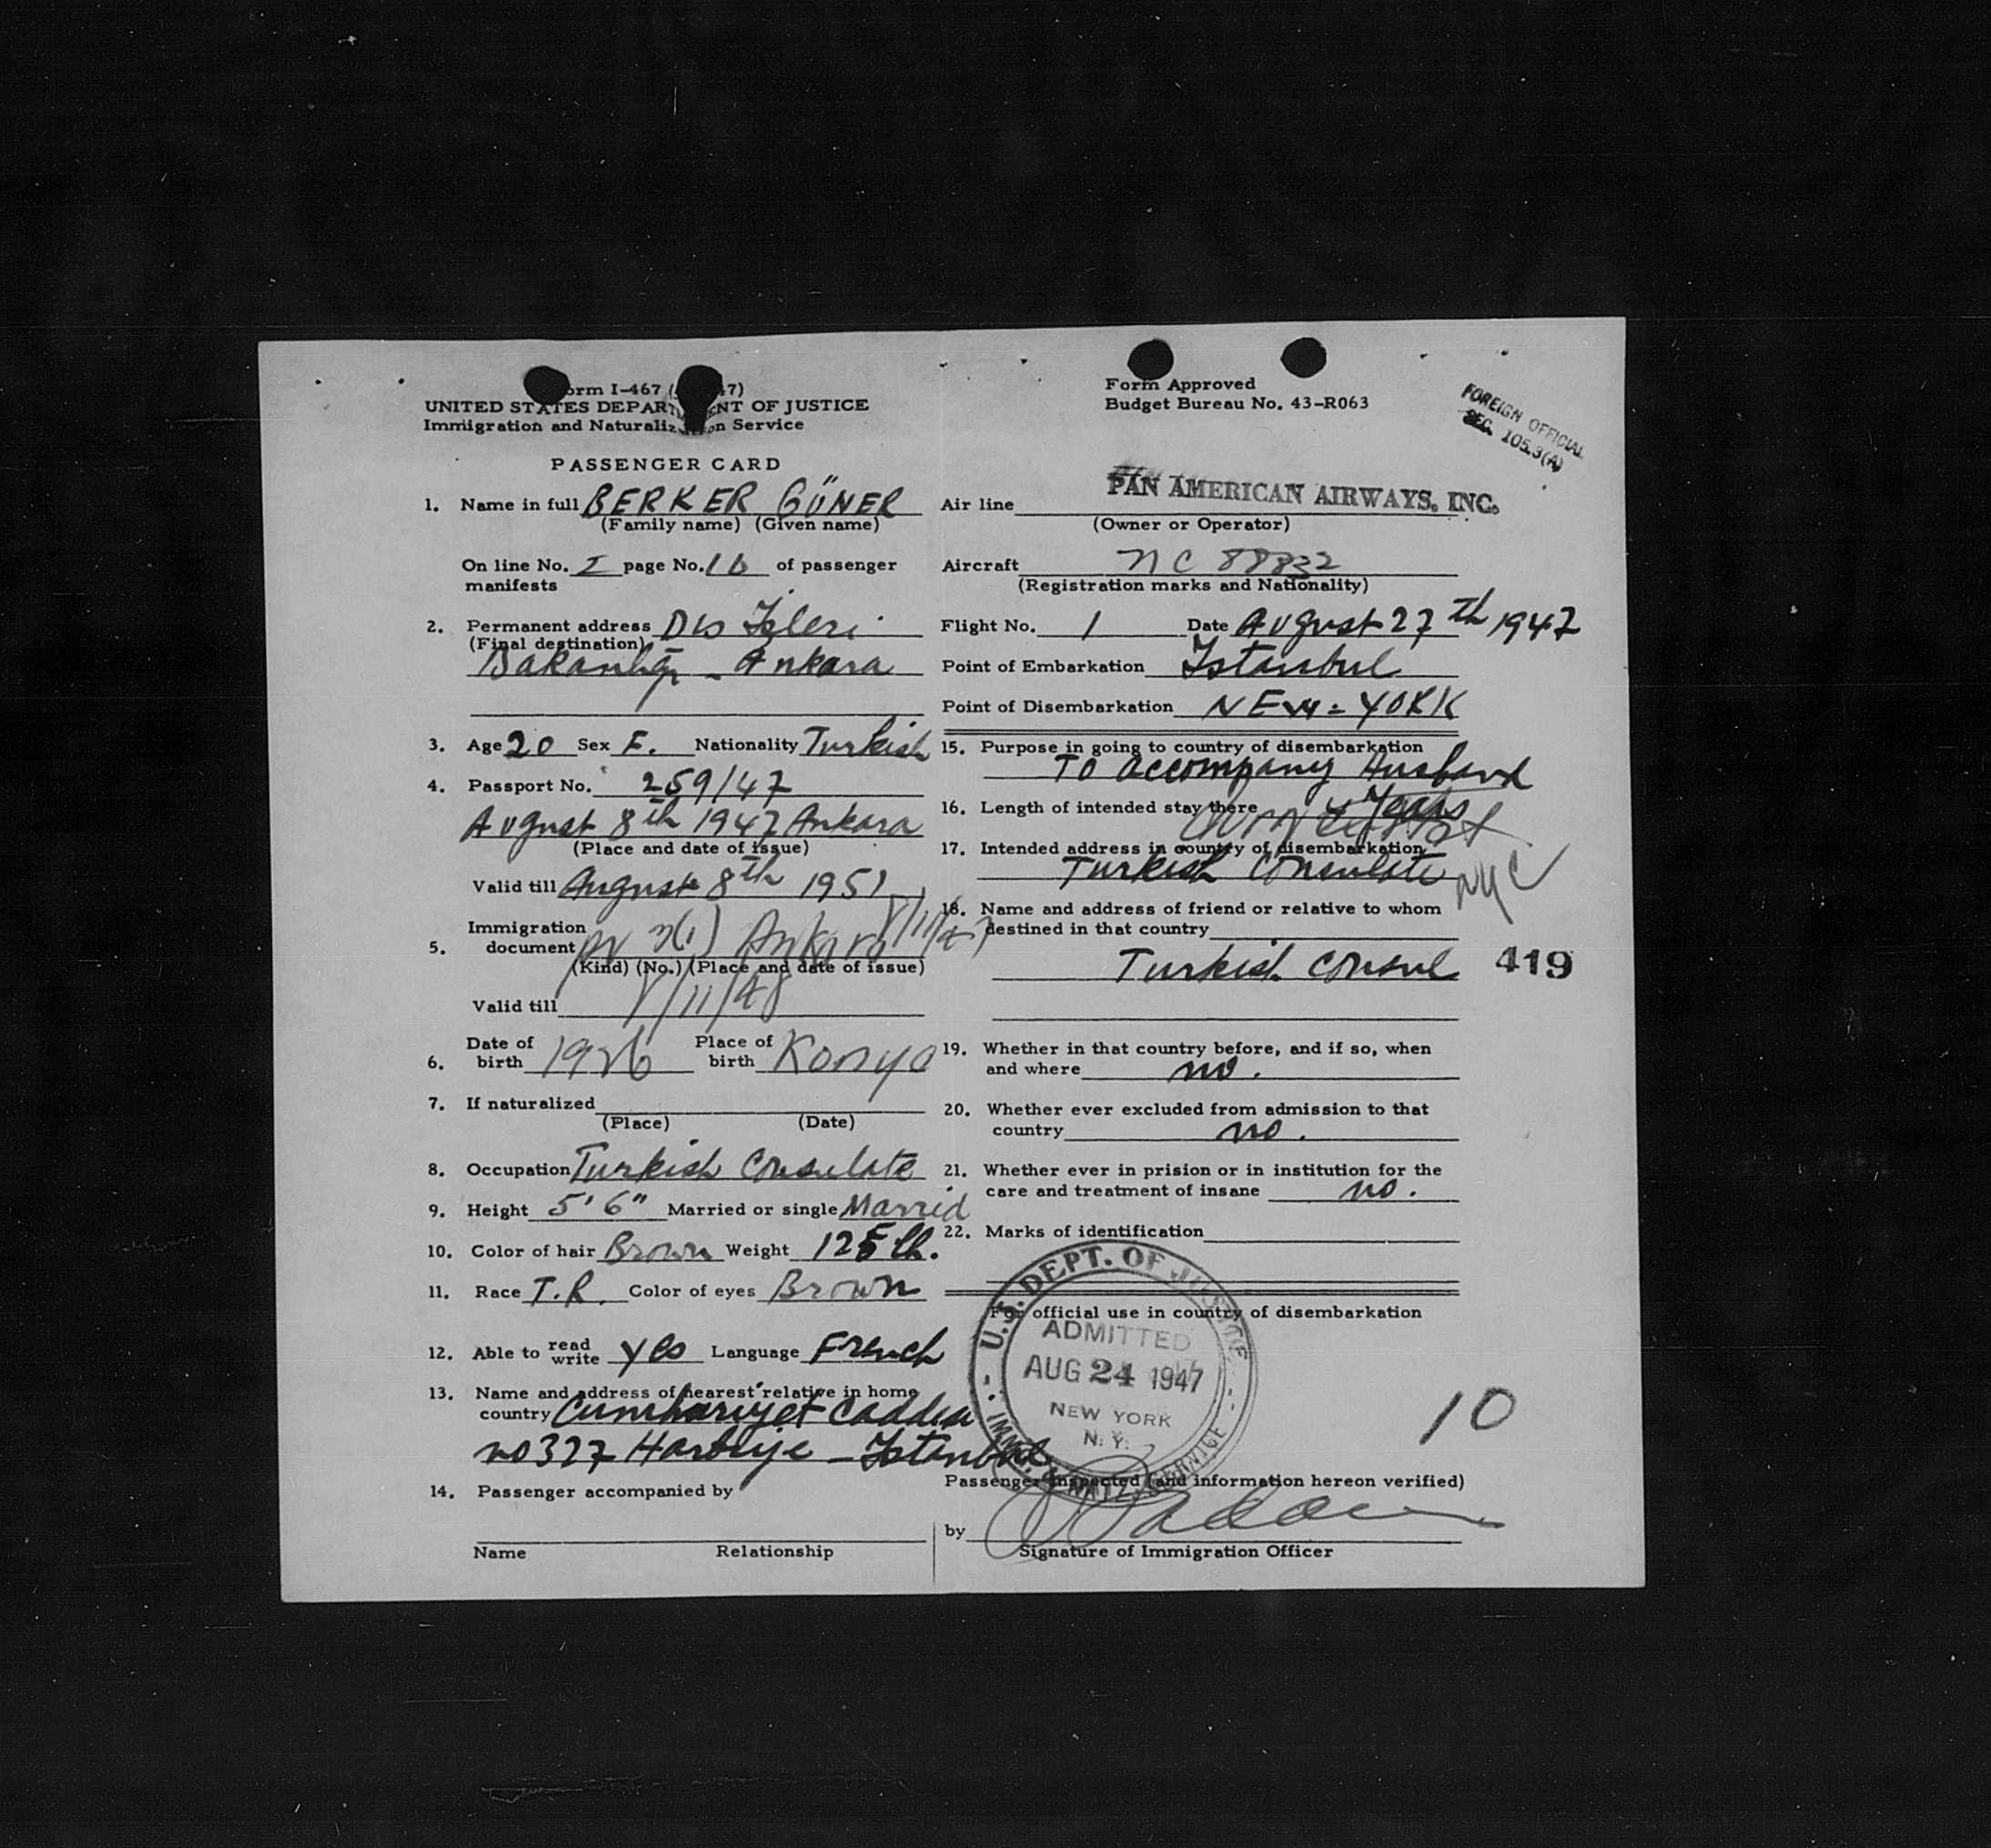 Form I-467 ( 47)
UNITED STATES DEPARTMENT OF JUSTICE
Immigration and Naturalization Service
PASSENGER CARD
1. Name in full BERKER GÜNER
(Family name) (Given name)
On line No. I page No. 16 of passenger
manifests
2. Permanent address Dıs İşleri
(Final destination)
Bakanlığı - Ankara
3. Age 20 Sex F. Nationality Turkish
4. Passport No. 259/47
August 8th 1947 Ankara
(Place and date of issue)
Valid till August 8th 1951
Immigration
5. document 3(1) Ankara 8/11/47
(Kind) (No.) (Place and date of issue)
Valid till 8/11/48
6. Date of birth 1926 Place of birth Konya
7. If naturalized
(Place) (Date)
8. Occupation Turkish Consulate
9. Height 5' 6" Married or single Married
10. Color of hair Brown Weight 125 lb.
11. Race T.R. Color of eyes Brown
12. Able to read write yes Language French
13. Name and address of nearest relative in home
country Cumhuriyet Caddesi
no 327 Harbiye - Istanbul
14. Passenger accompanied by
Name Relationship
Form Approved
Budget Bureau No. 43-R063
FOREIGN OFFICIAL
SEC. 105.3(A)
Air line PAN AMERICAN AIRWAYS, INC.
(Owner or Operator)
Aircraft NC 88832
(Registration marks and Nationality)
Flight No. 1 Date August 27th 1947
Point of Embarkation Istanbul
Point of Disembarkation NEW=YORK
15. Purpose in going to country of disembarkation
To accompany Husband
16. Length of intended stay there Years
17. Intended address in country of disembarkation
Turkish Consulate NYC
18. Name and address of friend or relative to whom
destined in that country
Turkish Consul 419
19. Whether in that country before, and if so, when
and where no.
20. Whether ever excluded from admission to that
country no.
21. Whether ever in prision or in institution for the
care and treatment of insane no.
22. Marks of identification
For official use in country of disembarkation
U.S. DEPT. OF JUSTICE
ADMITTED
AUG 24 1947
NEW YORK
N. Y.
IMMIG. & NATZ. SERVICE
10
Passenger inspected (and information hereon verified)
by
Signature of Immigration Officer